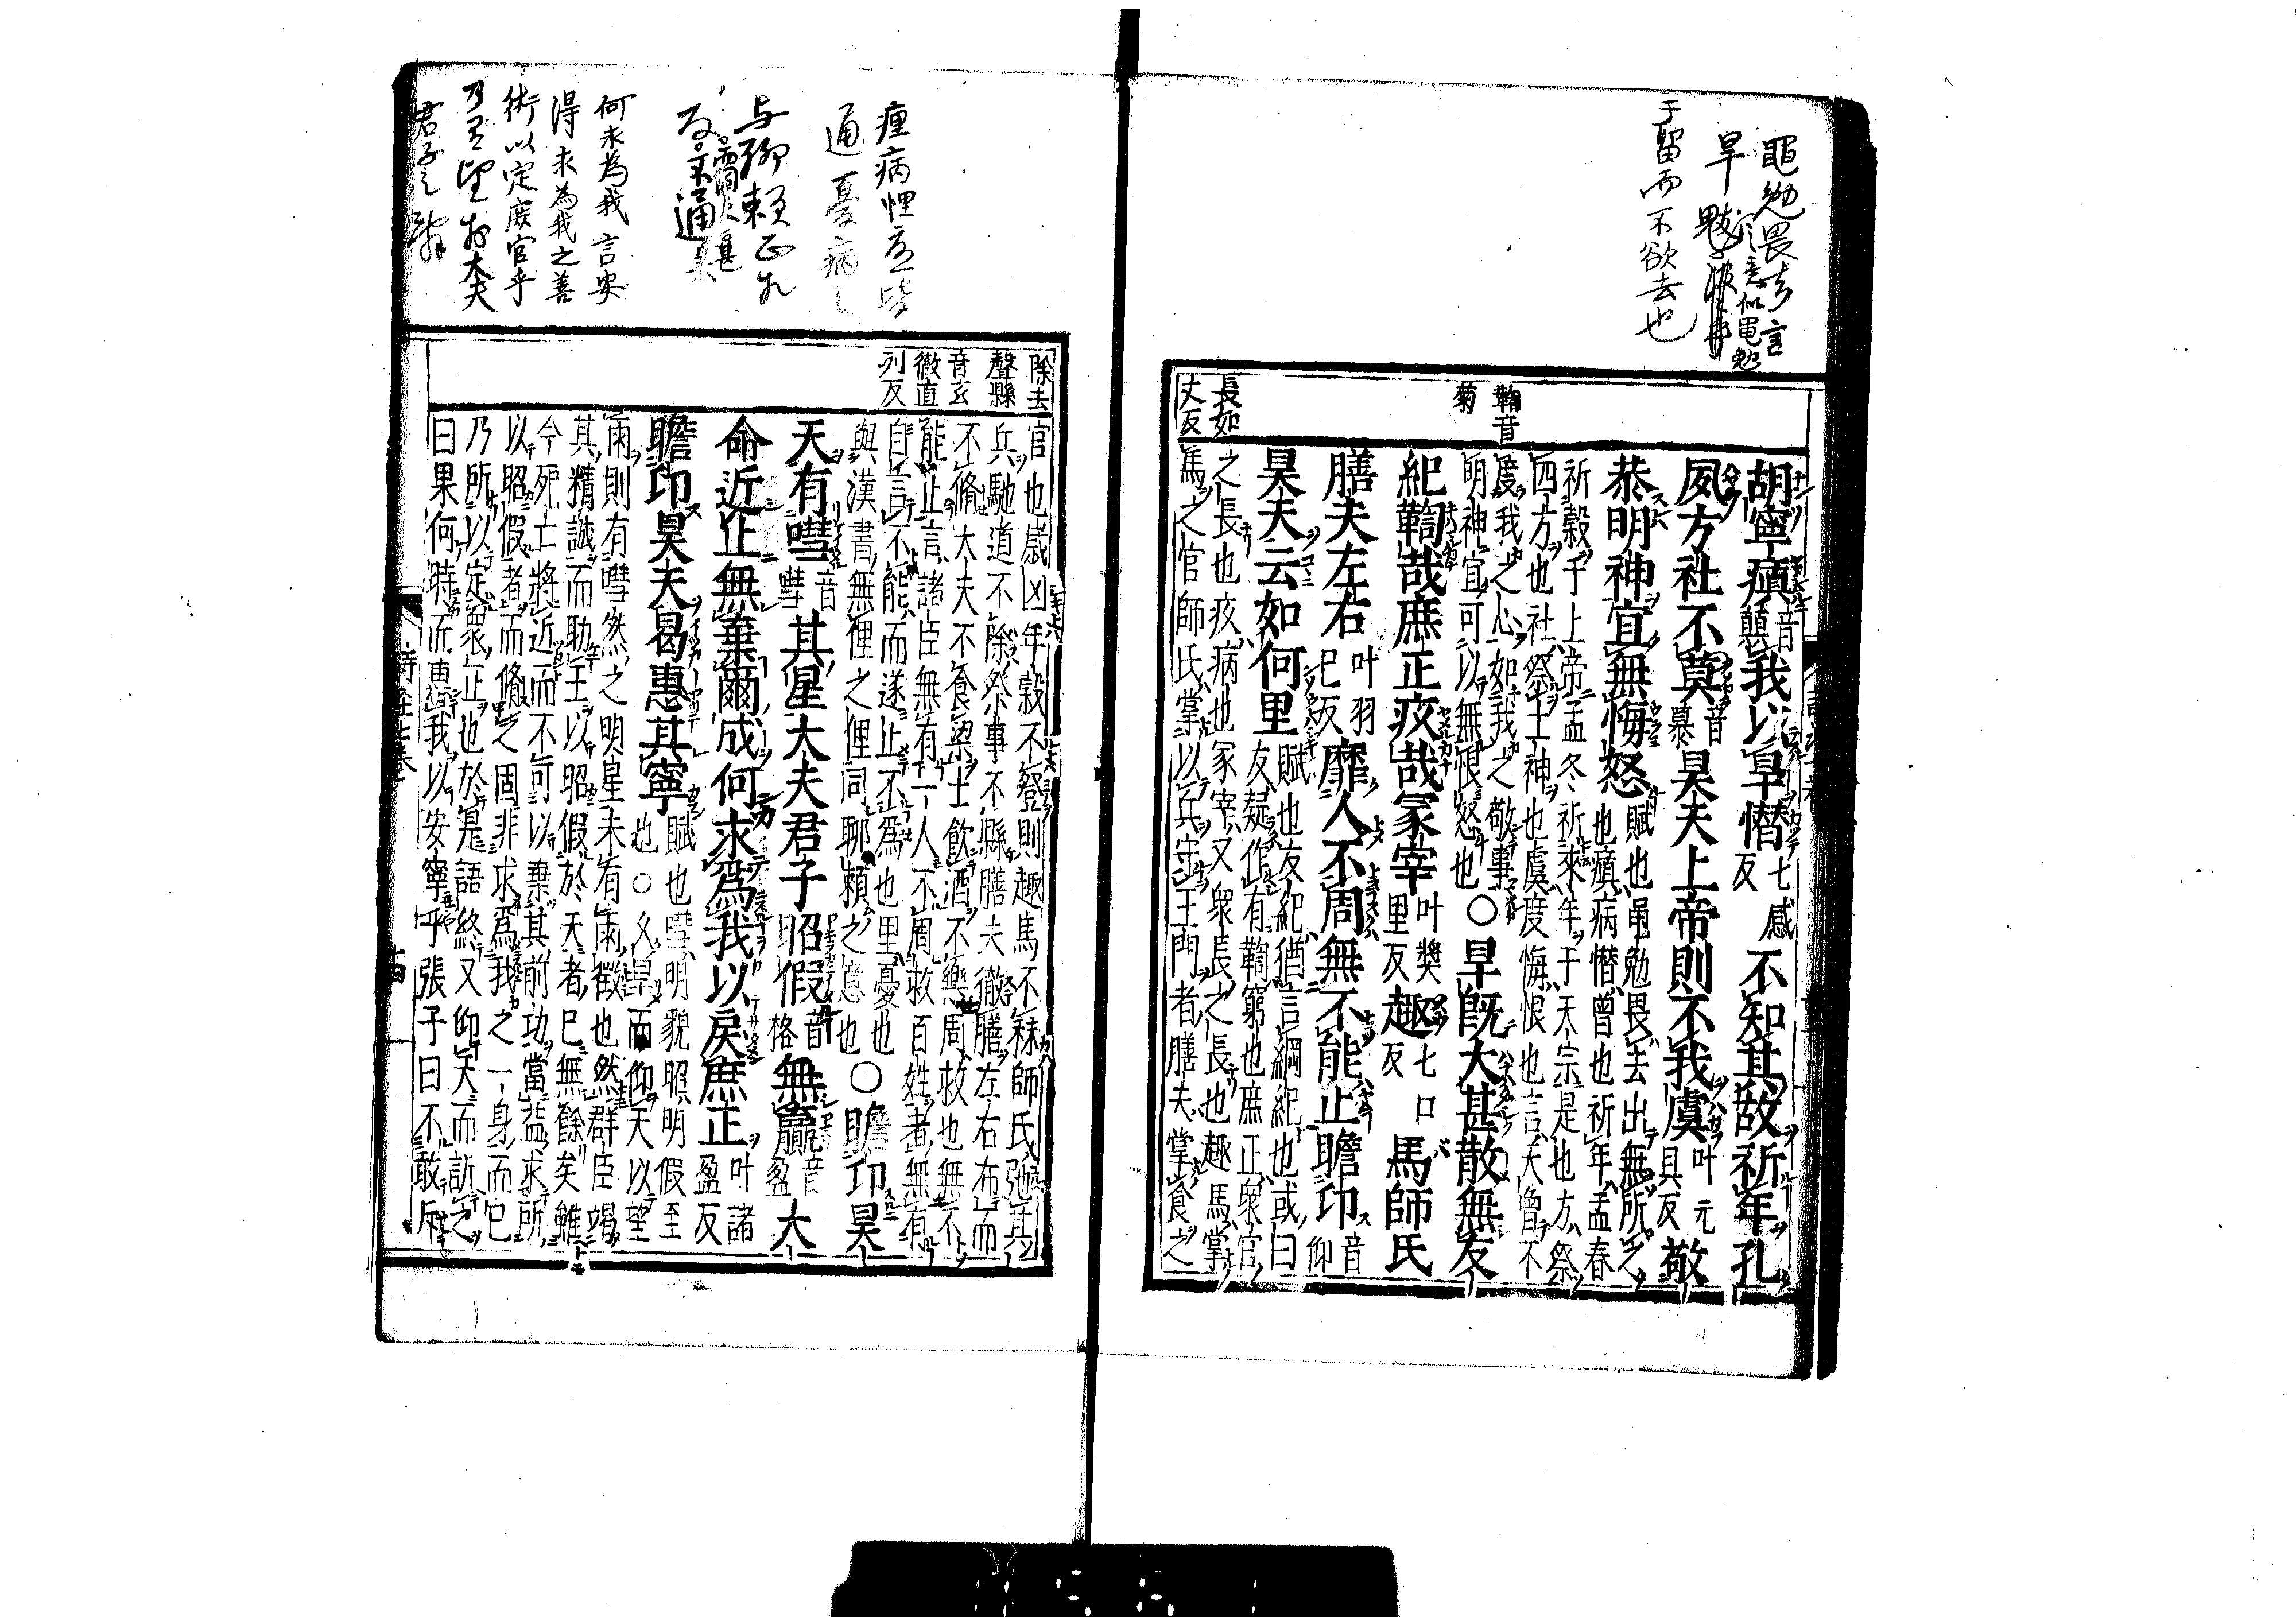 黽勉畏去言
旱魃
于留而不欲去也
鞫音
菊
長如
丈反
胡寧瘨音顚我以旱憯七感反不知其故祈年孔
夙方社不莫音慕昊天上帝則不我虞叶元具反敬
恭明神宜無悔怒賦也黽勉畏去出無所之
也瘨病憯曾也祈年孟春
祈穀于上帝孟冬祈來年于天宗是也方祭
四方也社祭土神也虞度悔恨也言天曾不
度我之心如我之敬事
明神宜可以無恨怒也○旱既大甚散無友
紀鞫哉庶正疚哉冢宰叶奬里反趣七口反馬師氏
膳夫左右叶羽已反靡人不周無不能止瞻卬音仰
昊天云如何里賦也友紀猶言綱紀也或曰
友疑作有鞫窮也庶正衆官
之長也疚病也冢宰又衆長之長也趣馬掌
馬之官師氏掌以兵守王門者膳夫掌食之
瘽病悝並皆
通憂病
何求為我言安
得求為我之善
術以定庶官乎
除去
聲縣
音玄
徹直
列反
官也歳凶年穀不登則趣馬不秣師氏弛其
兵馳道不除祭事不縣膳夫徹膳左右布而
不脩大夫不食粱士飲酒不樂周救也無不
能止言諸臣無有一人不周救百姓者無有
自言不能而遂止不爲也里憂也
與漢書無俚之俚同聊賴之意也○瞻卬昊
天有嘒音嘒其星大夫君子昭假音格無贏音盈大
命近止無棄爾成何求爲我以戾庶正叶諸盈反
瞻卬昊天曷惠其寧賦也嘒明貌昭明假至
也○久旱而仰天以望
雨則有嘒然之明星未有雨徵也然群臣竭
其精誠而助王以昭假於天者已無餘矣雖
今死亡將近而不可以棄其前功當益求所
以昭假者而脩之固非求爲我之一身而已
乃所以定衆正也於是語終又仰天而訴之
曰果何時而惠我以安寧乎張子曰不敢斥